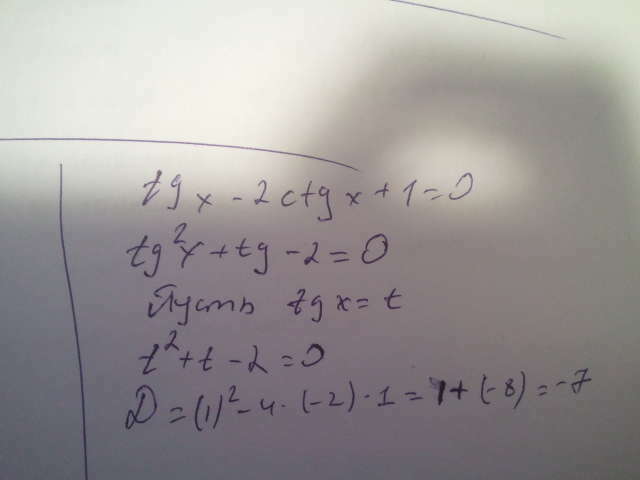 tg x - 2 ctg x + 1 = 0
tg²x + tg - 2 = 0
Пусть tg x = t
t² + t - 2 = 0
D = (1)² - 4 · (-2) · 1 = 1 + (-8) = -7